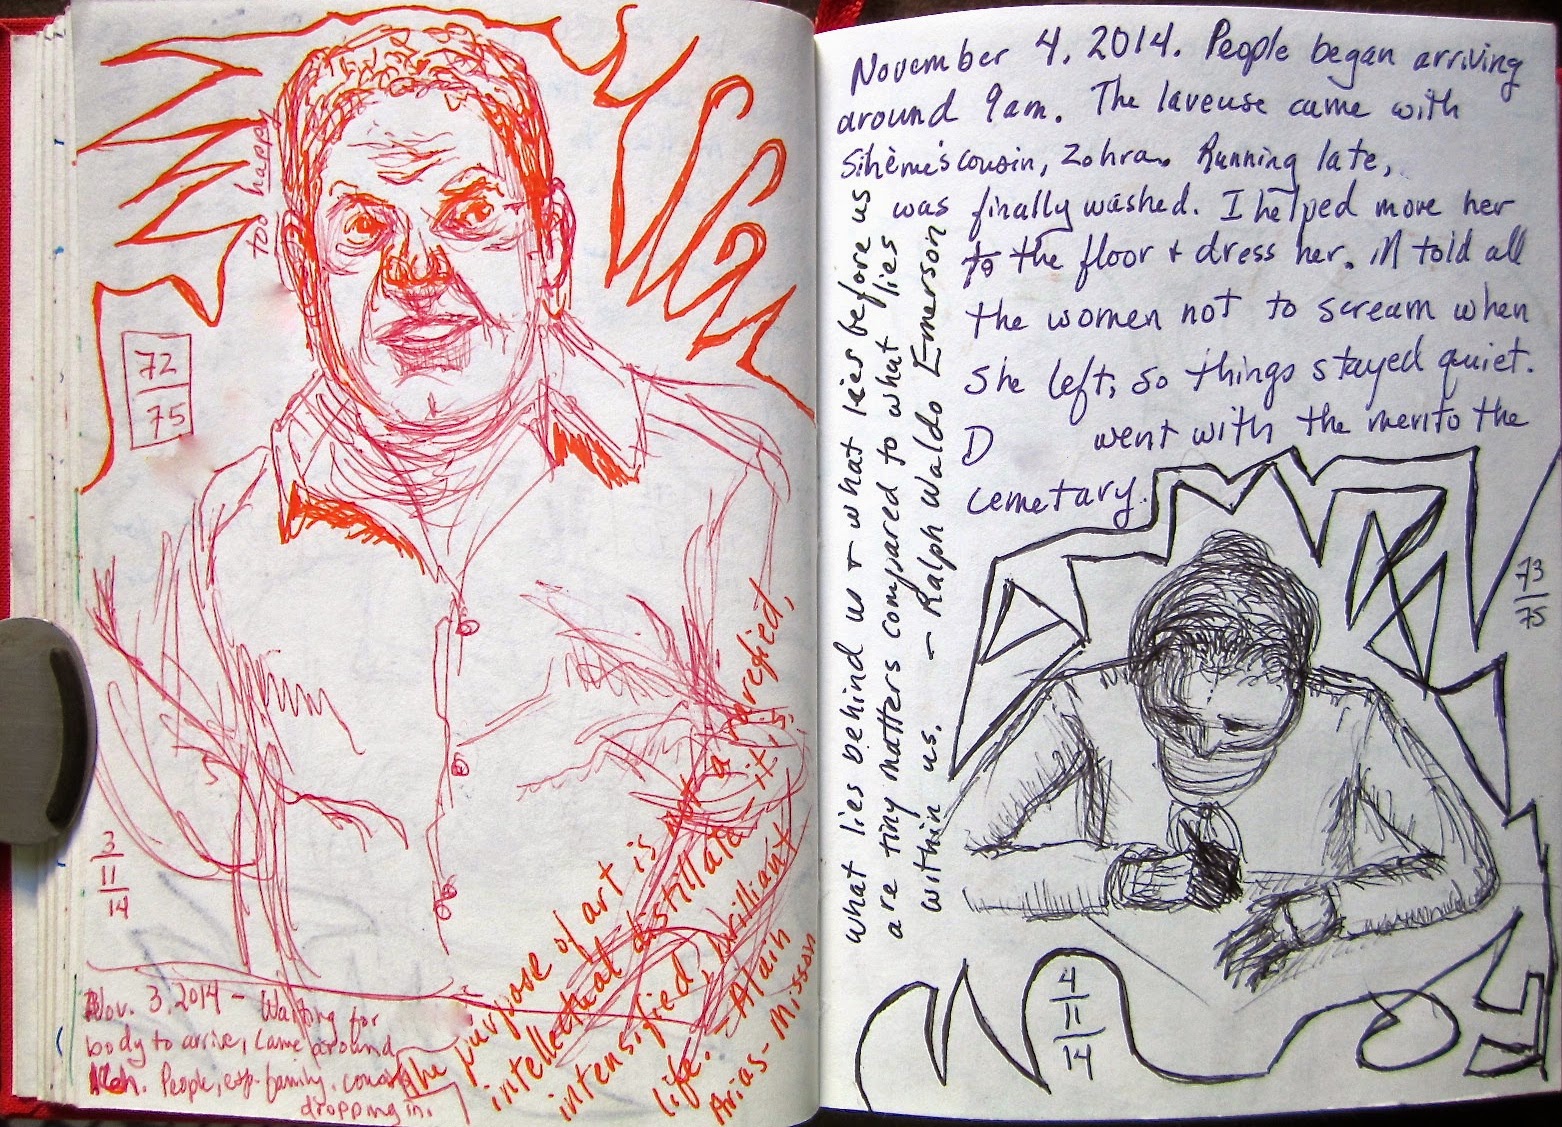 too happy
72
75
3
11
14
Nov. 3, 2014 - Waiting for
body to arrive, came around
People, esp. family, cousins
dropping in.
The purpose of art is not a rarefied,
intellectual distillate - it is
intensified, brilliant
life. - Alain
Arias-Misson
November 4, 2014. People began arriving
around 9am. The laveuse came with
Sihème's cousin, Zohra. Running late,
was finally washed. I helped move her
to the floor + dress her. M told all
the women not to scream when
she left, so things stayed quiet.
D went with the men to the
cemetary.
What lies behind us + what lies before us
are tiny matters compared to what lies
within us. - Ralph Waldo Emerson
73
75
4
11
14